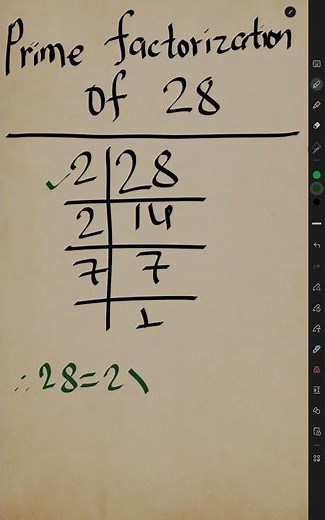 Prime factorization
of 28
2 28
2 14
7 7
1
∴ 28=2\